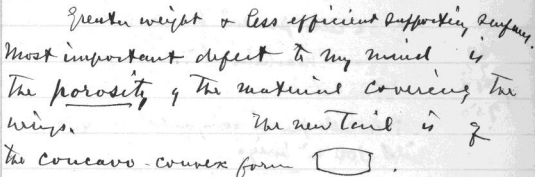 Greater weight & less efficient supporting surfaces.
Most important defect to my mind is
the porosity of the material covering the
wings. The new tail is of
the concavo-convex form